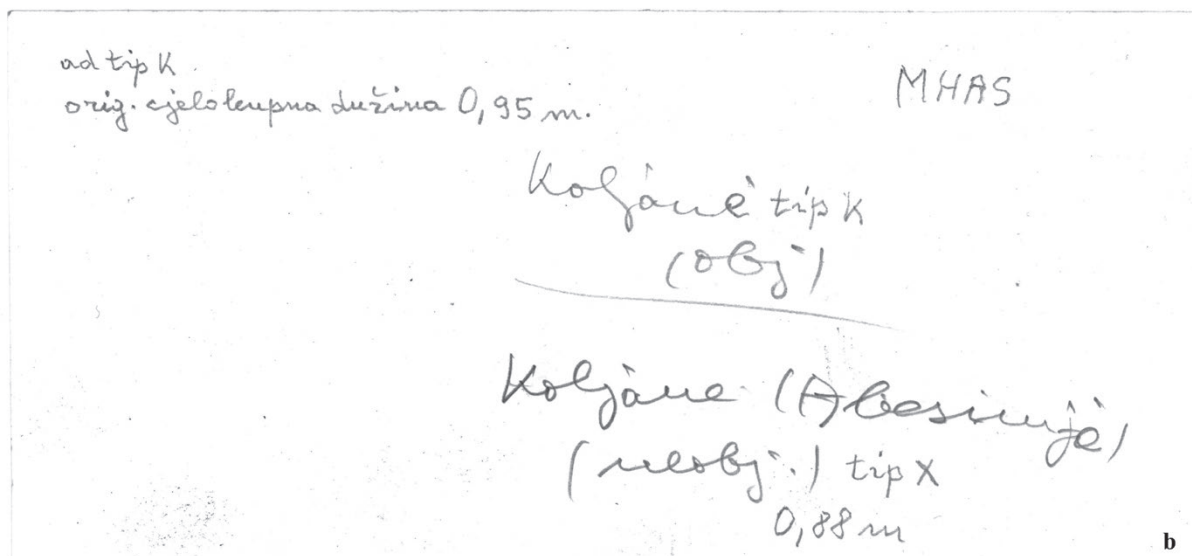 ad tip K.
orig. cjelokupna dužina 0,95 m.
MHAS
Koljane tip K
(obj)
Koljane (Abesinije)
(neobj.) tip X
0,88 m
b